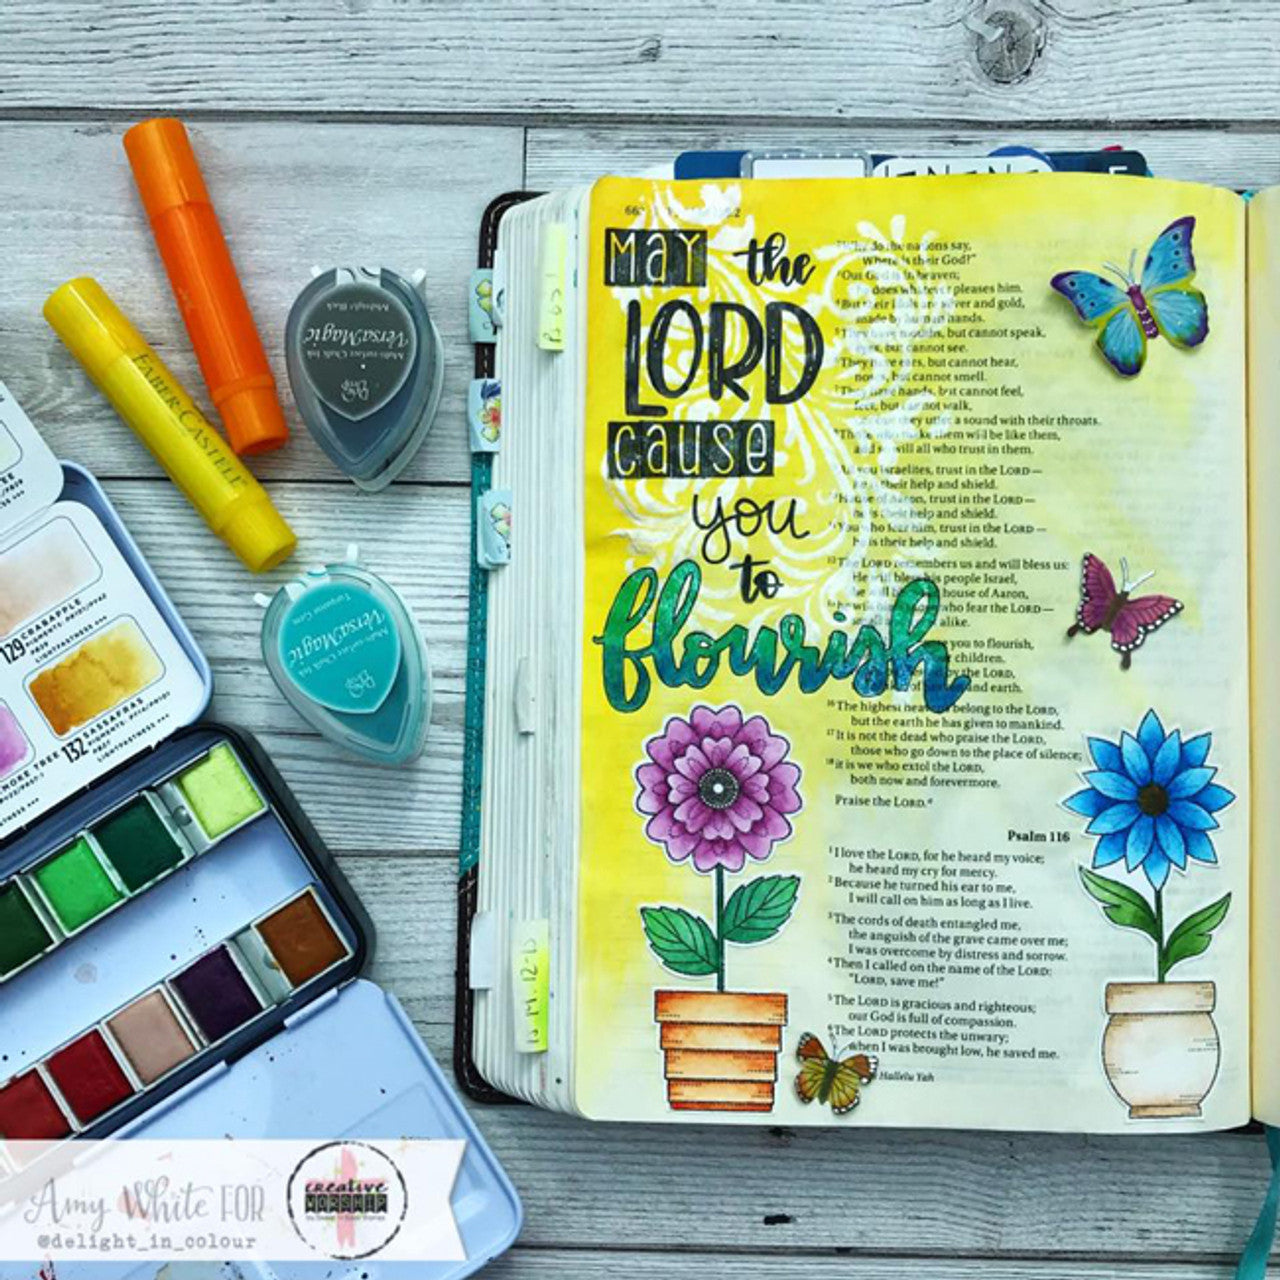 MAY the
LORD
cause
you
to
flourish
Why do the nations say,
"Where is their God?"
Our God is in heaven;
he does whatever pleases him.
But their idols are silver and gold,
made by human hands.
They have mouths, but cannot speak,
eyes, but cannot see.
They have ears, but cannot hear,
noses, but cannot smell.
They have hands, but cannot feel,
feet, but cannot walk,
a sound with their throats.
Those who make them will be like them,
and so will all who trust in them.
All you Israelites, trust in the LORD—
he is their help and shield.
House of Aaron, trust in the LORD—
he is their help and shield.
You who fear him, trust in the LORD—
he is their help and shield.
12 The LORD remembers us and will bless us:
He will bless his people Israel,
he will house of Aaron,
who fear the LORD—
alike.
you to flourish,
children.
by the LORD,
and earth.
16 The highest heavens belong to the LORD,
but the earth he has given to mankind.
17 It is not the dead who praise the LORD,
those who go down to the place of silence;
18 it is we who extol the LORD,
both now and forevermore.
Praise the LORD.
Psalm 116
1 I love the LORD, for he heard my voice;
he heard my cry for mercy.
2 Because he turned his ear to me,
I will call on him as long as I live.
3 The cords of death entangled me,
the anguish of the grave came over me;
I was overcome by distress and sorrow.
4 Then I called on the name of the LORD:
"LORD, save me!"
5 The LORD is gracious and righteous;
our God is full of compassion.
6 The LORD protects the unwary;
when I was brought low, he saved me.
Hallelu Yah
FABER-CASTELL
VersaMagic
Multi-surface Chalk Ink
Midnight Black
VersaMagic
Multi-surface Chalk Ink
Turquoise Gem
129 CRABAPPLE
132 SASSAFRAS
SMOKE TREE
Amy White FOR
@delight_in_colour
creative
WORSHIP